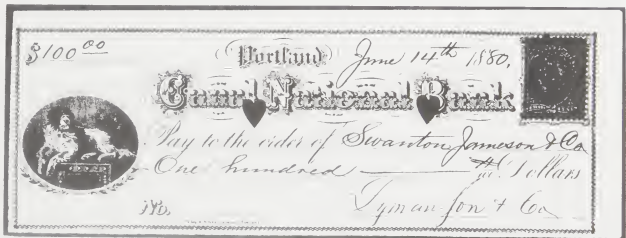 $100 00 Portland June 14th 1880.
National Bank
Pay to the order of Swanton Jameson & Co
One hundred Dollars
No. Lyman Son & Co